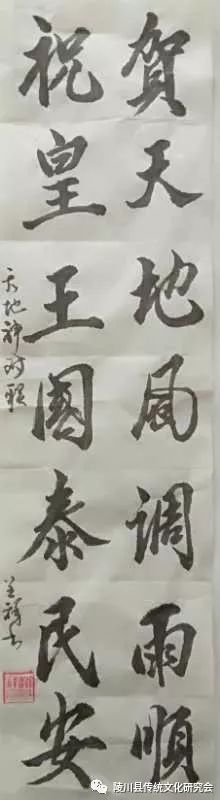 賀天地風调雨順
祝皇王國泰民安
天地神对联
陵川县传统文化研究会